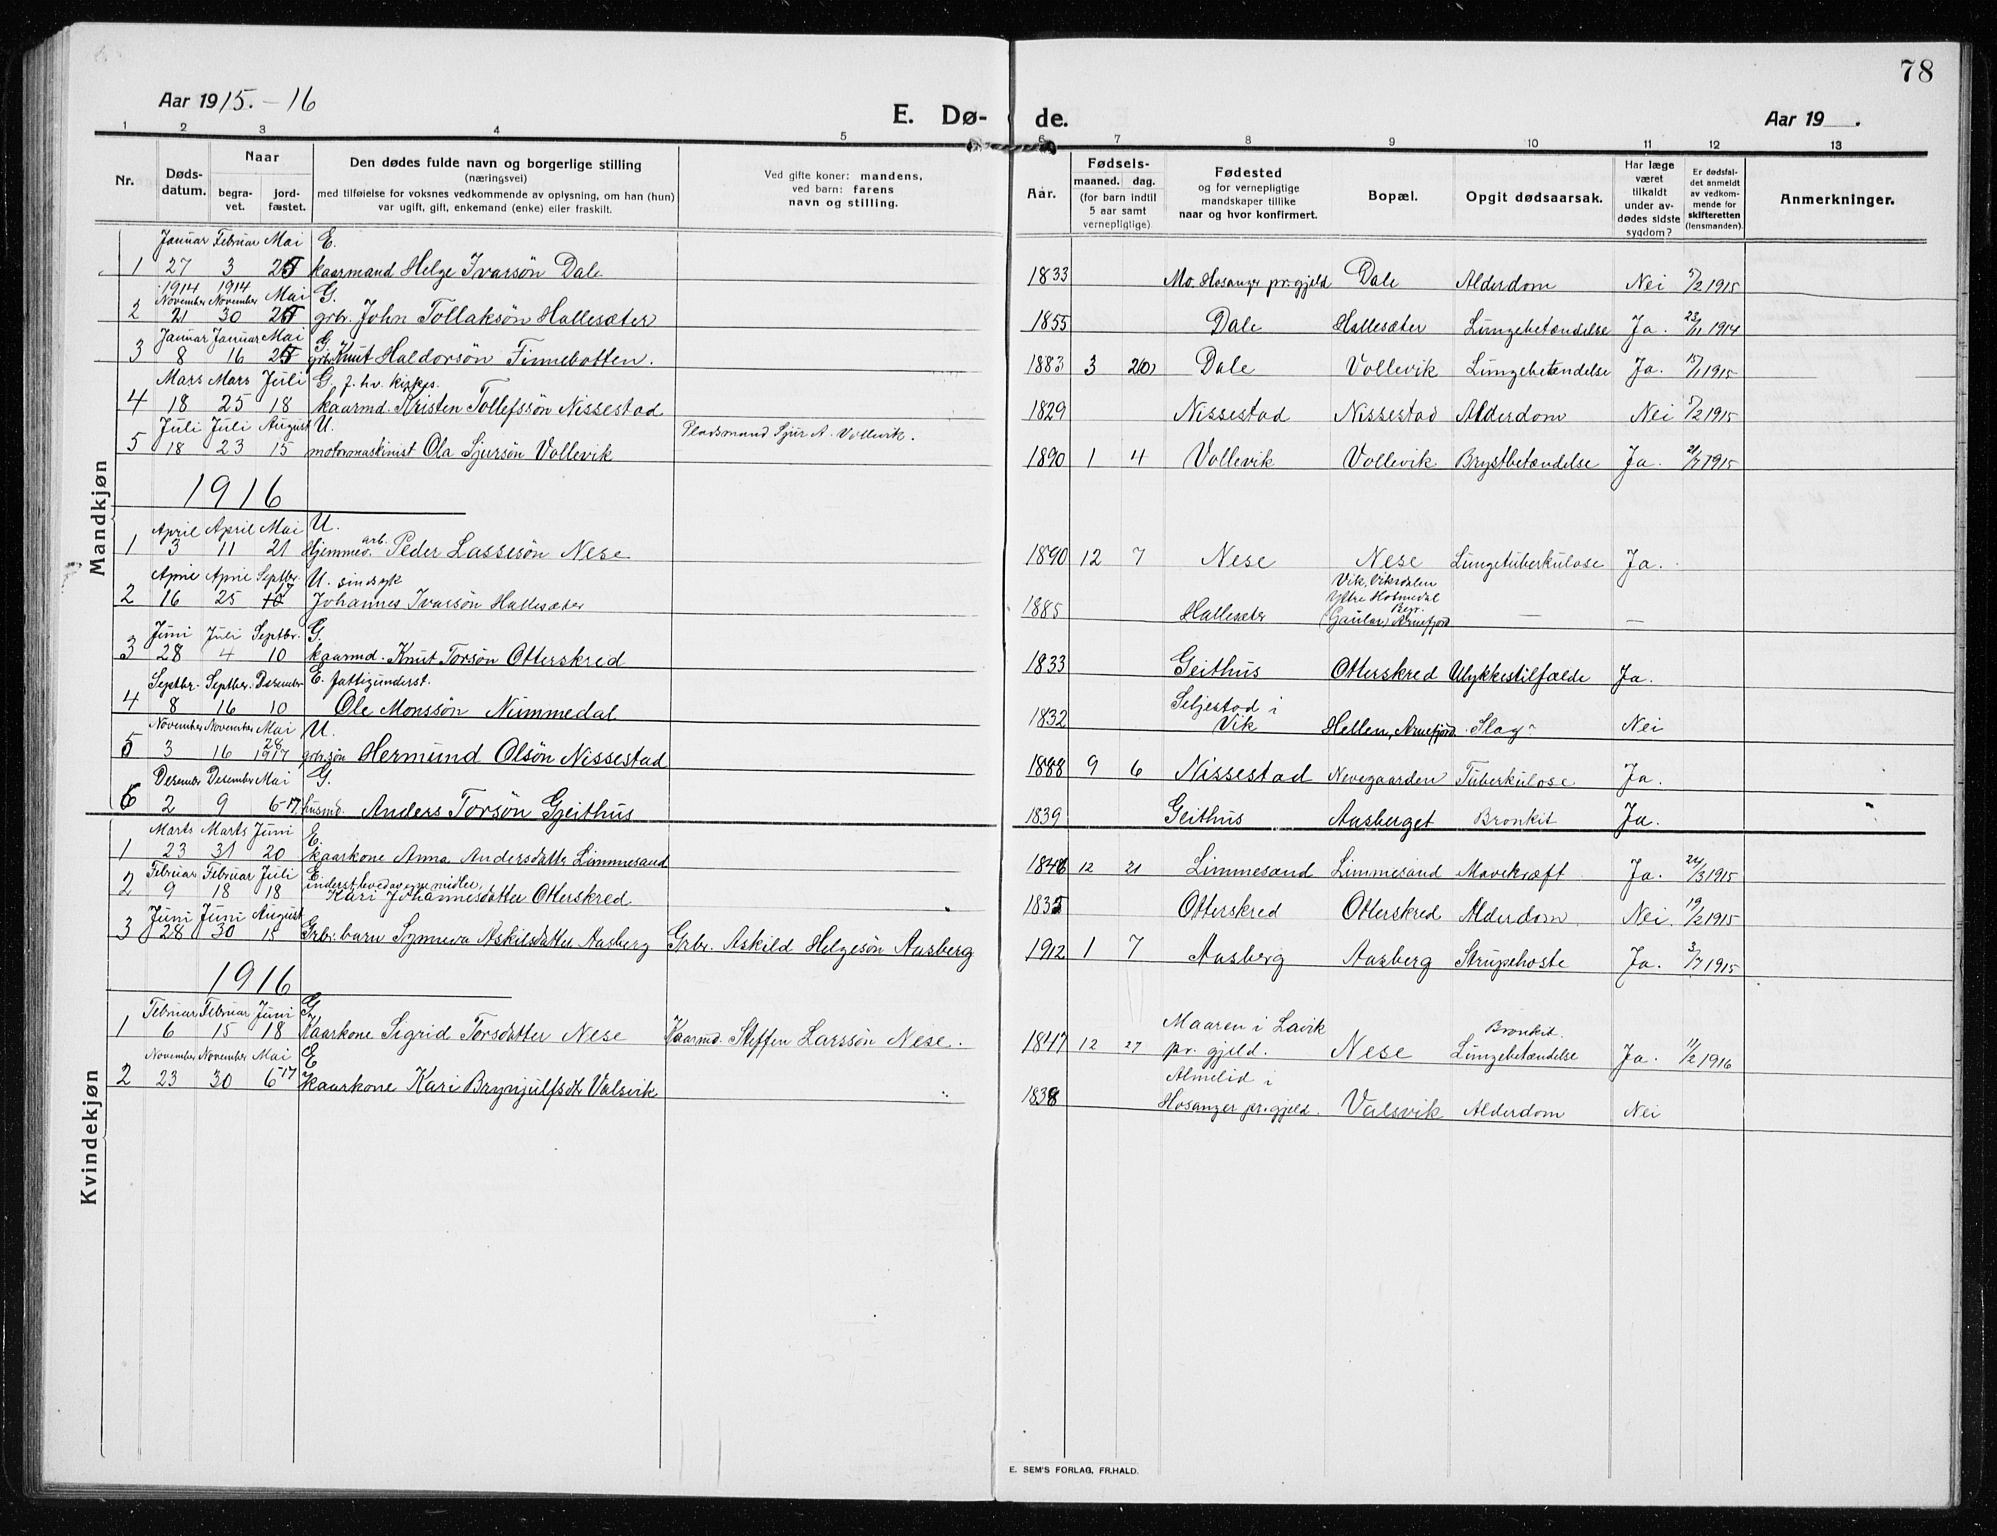 78
Aar 1915.-16
E. Dø-
de.
Aar 19 .
1 2 3 4 5 6 7 8 9 10 11 12 13
Nr.
Døds-
datum.
Naar
begra-
vet.
jord-
fæstet.
Den dødes fulde navn og borgerlige stilling
(næringsvei)
med tilføielse for voksnes vedkommende av oplysning, om han (hun)
var ugift, gift, enkemand (enke) eller fraskilt.
Ved gifte koner: mandens,
ved barn: farens
navn og stilling.
Aar.
Fødsels-
maaned. dag.
(for barn indtil
5 aar samt
vernepligtige).
Fødested
og for vernepligtige
mandskaper tillike
naar og hvor konfirmert.
Bopæl.
Opgit dødsaarsak.
Har læge
været
tilkaldt
under av-
dødes sidste
sygdom?
Er dødsfal-
det anmeldt
av vedkom-
mende for
skifteretten
(lensmanden).
Anmerkninger.
Mandkjøn
Januar Februar Mai E.
1 27 3 25 kaarmand Helge Ivarsön Dale 1833 Mo. Hosanger pr.gjeld Dale Alderdom Nei 5/2 1915
1914 1914
November November Mai G.
2 21 30 25 grbr. John Tollaksön Hallesæter 1855 Dale Hallesæter Lungebetændelse Ja. 23/11 1914
Januar Januar Mai G.
3 8 16 25 grbr. Knut Haldorsön Finnebotten. 1883 3 20 Dale Vollevik Lungebetændelse Ja. 15/1 1915
Mars Mars Juli G. f. hv. kirkes.
4 18 25 18 kaarmd. Kristen Tollefssön Nissestad 1829 Nissestad Nissestad Alderdom Nei 5/2 1915
Juli Juli August U. Pladsmand Sjur A. Vollevik.
5 18 23 15 motormaskinist Ola Sjursön Vollevik 1890 1 4 Vollevik Vollevik Brystbetændelse Ja. 21/7 1915
1916
April April Mai U.
1 3 11 21 Hjemmev. arb. Peder Lassesön Nese 1890 12 7 Nese Nese Lungetuberkulose Ja.
April April Septbr. U. sindsyk Vik, Viksdalen
17 Ytre Holmedal
2 16 25 10 Johannes Ivarsön Hallesæter 1885 Hallesæter (Gaular) Begr. Arnefjord — —
Juni Juli Septbr. G.
3 28 4 10 kaarmd. Knut Torsön Otterskred 1833 Geithus Otterskred Ulykkestilfælde Ja.
Septbr. Septbr. Desember E. fattigunderst. Seljestad i
4 8 16 10 Ole Monssön Nummedal 1832 Vik Hellen, Arnefjord Slag Nei
November November Mai U.
28
5 3 16 1917 grbr.sön Hermund Olsön Nissestad 1888 9 6 Nissestad Nevegaarden Tuberkulose Ja.
Desember Desember Mai G.
6 2 9 6-17. husmd. Anders Torsön Gjeithus 1839 Geithus Aasberget Bronkit Ja.
Kvindekjøn
Marts Marts Juni E.
1 23 31 20 kaarkone Anna Andersdatter Limmesand 1846 12 21 Limmesand Limmesand Mavekræft Ja. 24/3 1915
Februar Februar Juli E. inderst leved av egne midler,
2 9 18 18 Kari Johannesdatter Otterskred 1835 Otterskred Otterskred Alderdom Nei. 19/2 1915
Juni Juni August
3 28 30 15 Grbr. barn Synneva Askilsdatter Aasberg Grbr. Askild Helgesön Aasberg 1912 1 7 Aasberg Aasberg Strupehoste Ja. 3/7 1915
1916
Februar Februar Juni G. Maaren i Lavik Bronkit.
1 6 15 18 Kaarkone Sigrid Torsdatter Nese Kaarmd. Steffen Larssön Nese. 1847 12 27 pr. gjeld. Nese Lungebetændelse Ja. 11/2 1916
November November Mai E Almelid i
2 23 30 6-17 kaarkone Kari Brynjulfsdtr Valsvik 1838 Hosanger pr.gjeld. Valsvik Alderdom Nei
E. SEM'S FORLAG, FR.HALD.